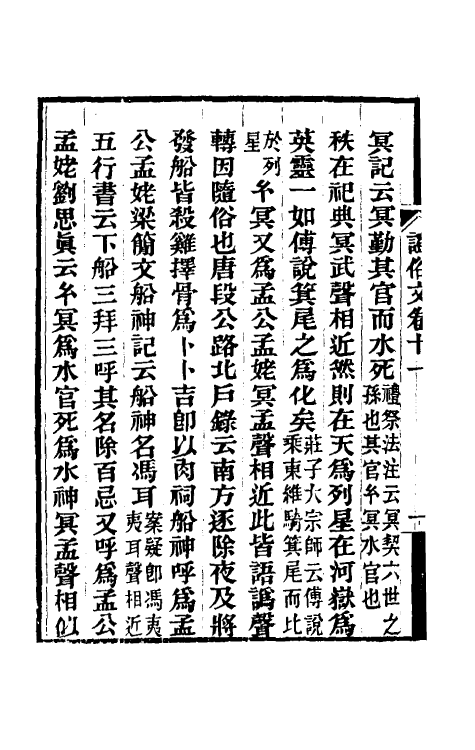 證俗文卷十一
一
冥記云冥勤其官而水死禮祭法注云冥契六世之孫也其官玄冥水官也
秩在祀典冥武聲相近然則在天爲列星在河嶽爲
英靈一如傅說箕尾之爲化矣莊子大宗師云傅說乘東維騎箕尾而比
於列星玄冥又爲孟公孟姥冥孟聲相近此皆語譌聲
轉因隨俗也唐段公路北戶錄云南方逐除夜及將
發船皆殺雞擇骨爲卜卜吉卽以肉祠船神呼爲孟
公孟姥梁簡文船神記云船神名馮耳案疑卽馮夷夷耳聲相近
五行書云下船三拜三呼其名除百忌又呼爲孟公
孟姥劉思眞云玄冥爲水官死爲水神冥孟聲相似